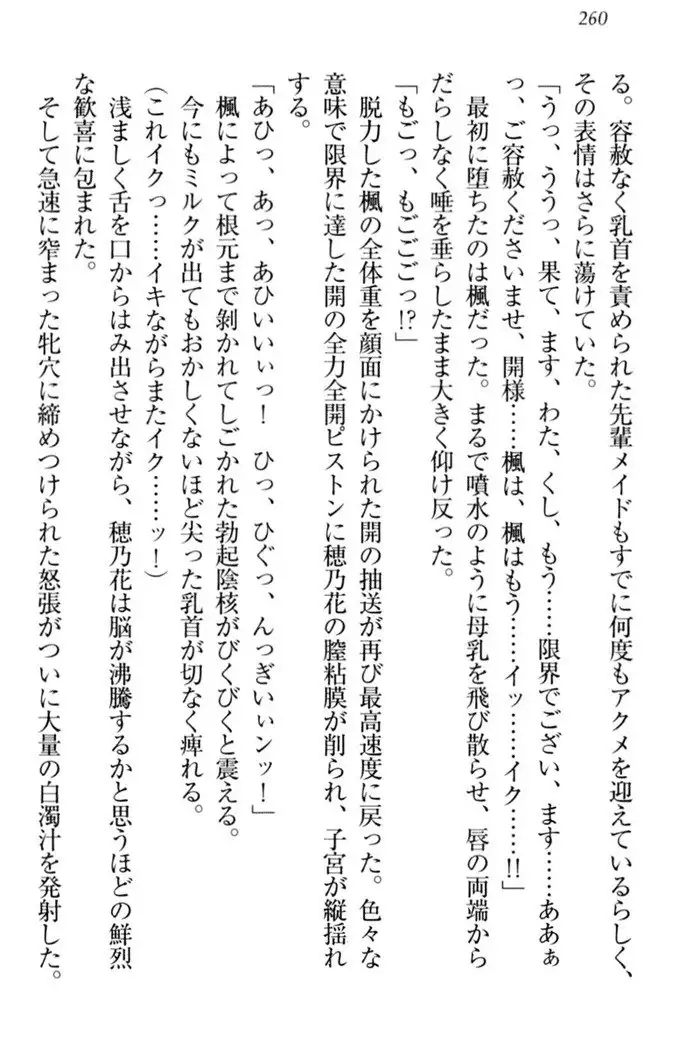 260
る。容赦なく乳首を責められた先輩メイドもすでに何度もアクメを迎えているらしく、
その表情はさらに蕩けていた。
「うっ、ううっ、果て、ます、わた、くし、もう……限界でござい、ます……ああぁ
っ、ご容赦くださいませ、開様……楓は、楓はもう……イッ……イク……!!」
最初に堕ちたのは楓だった。まるで噴水のように母乳を飛び散らせ、唇の両端から
だらしなく唾を垂らしたまま大きく仰け反った。
「もごっ、もごごごっ!?」
脱力した楓の全体重を顔面にかけられた開の抽送が再び最高速度に戻った。色々な
意味で限界に達した開の全力全開ピストンに穂乃花の膣粘膜が削られ、子宮が縦揺れ
する。
「あひっ、あっ、あひいいぃっ！　ひっ、ひぐっ、んっぎいぃンッ！」
楓によって根元まで剝かれてしごかれた勃起陰核がびくびくと震える。
今にもミルクが出てもおかしくないほど尖った乳首が切なく痺れる。
(これイクっ……イキながらまたイク……ッ！)
浅ましく舌を口からはみ出させながら、穂乃花は脳が沸騰するかと思うほどの鮮烈
な歓喜に包まれた。
そして急速に窄まった牝穴に締めつけられた怒張がついに大量の白濁汁を発射した。